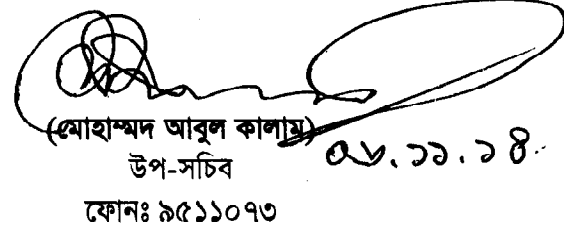 (মোহাম্মদ আবুল কালাম)
০৮.১১.১৪
উপ-সচিব
ফোনঃ ৯৫১১০৭৩